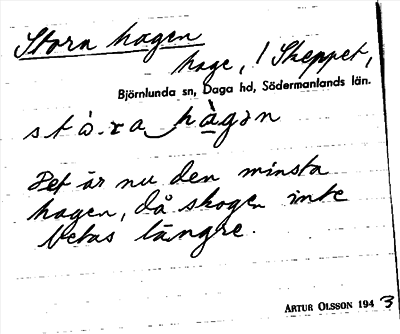 Stora hagen
hage, ! Skeppet,
Björnlunda sn, Daga hd, Södermanlands län.
Det är nu den minsta
hagen, då skogen inte
betas längre.
ARTUR OLSSON 1943